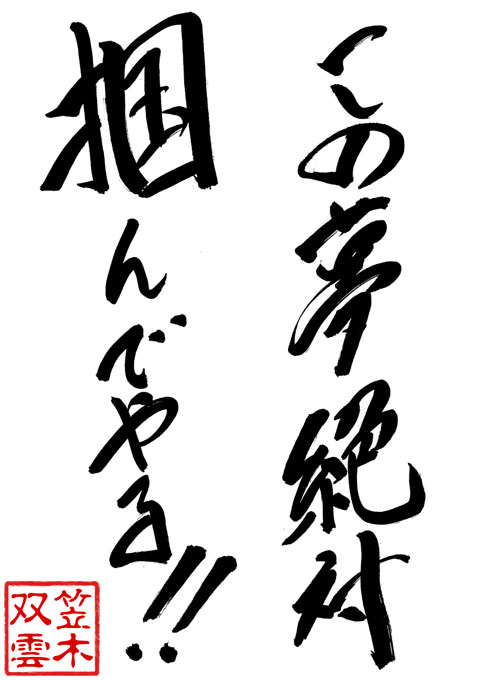 この夢絶対
掴んでやる!!
笠木
双雲